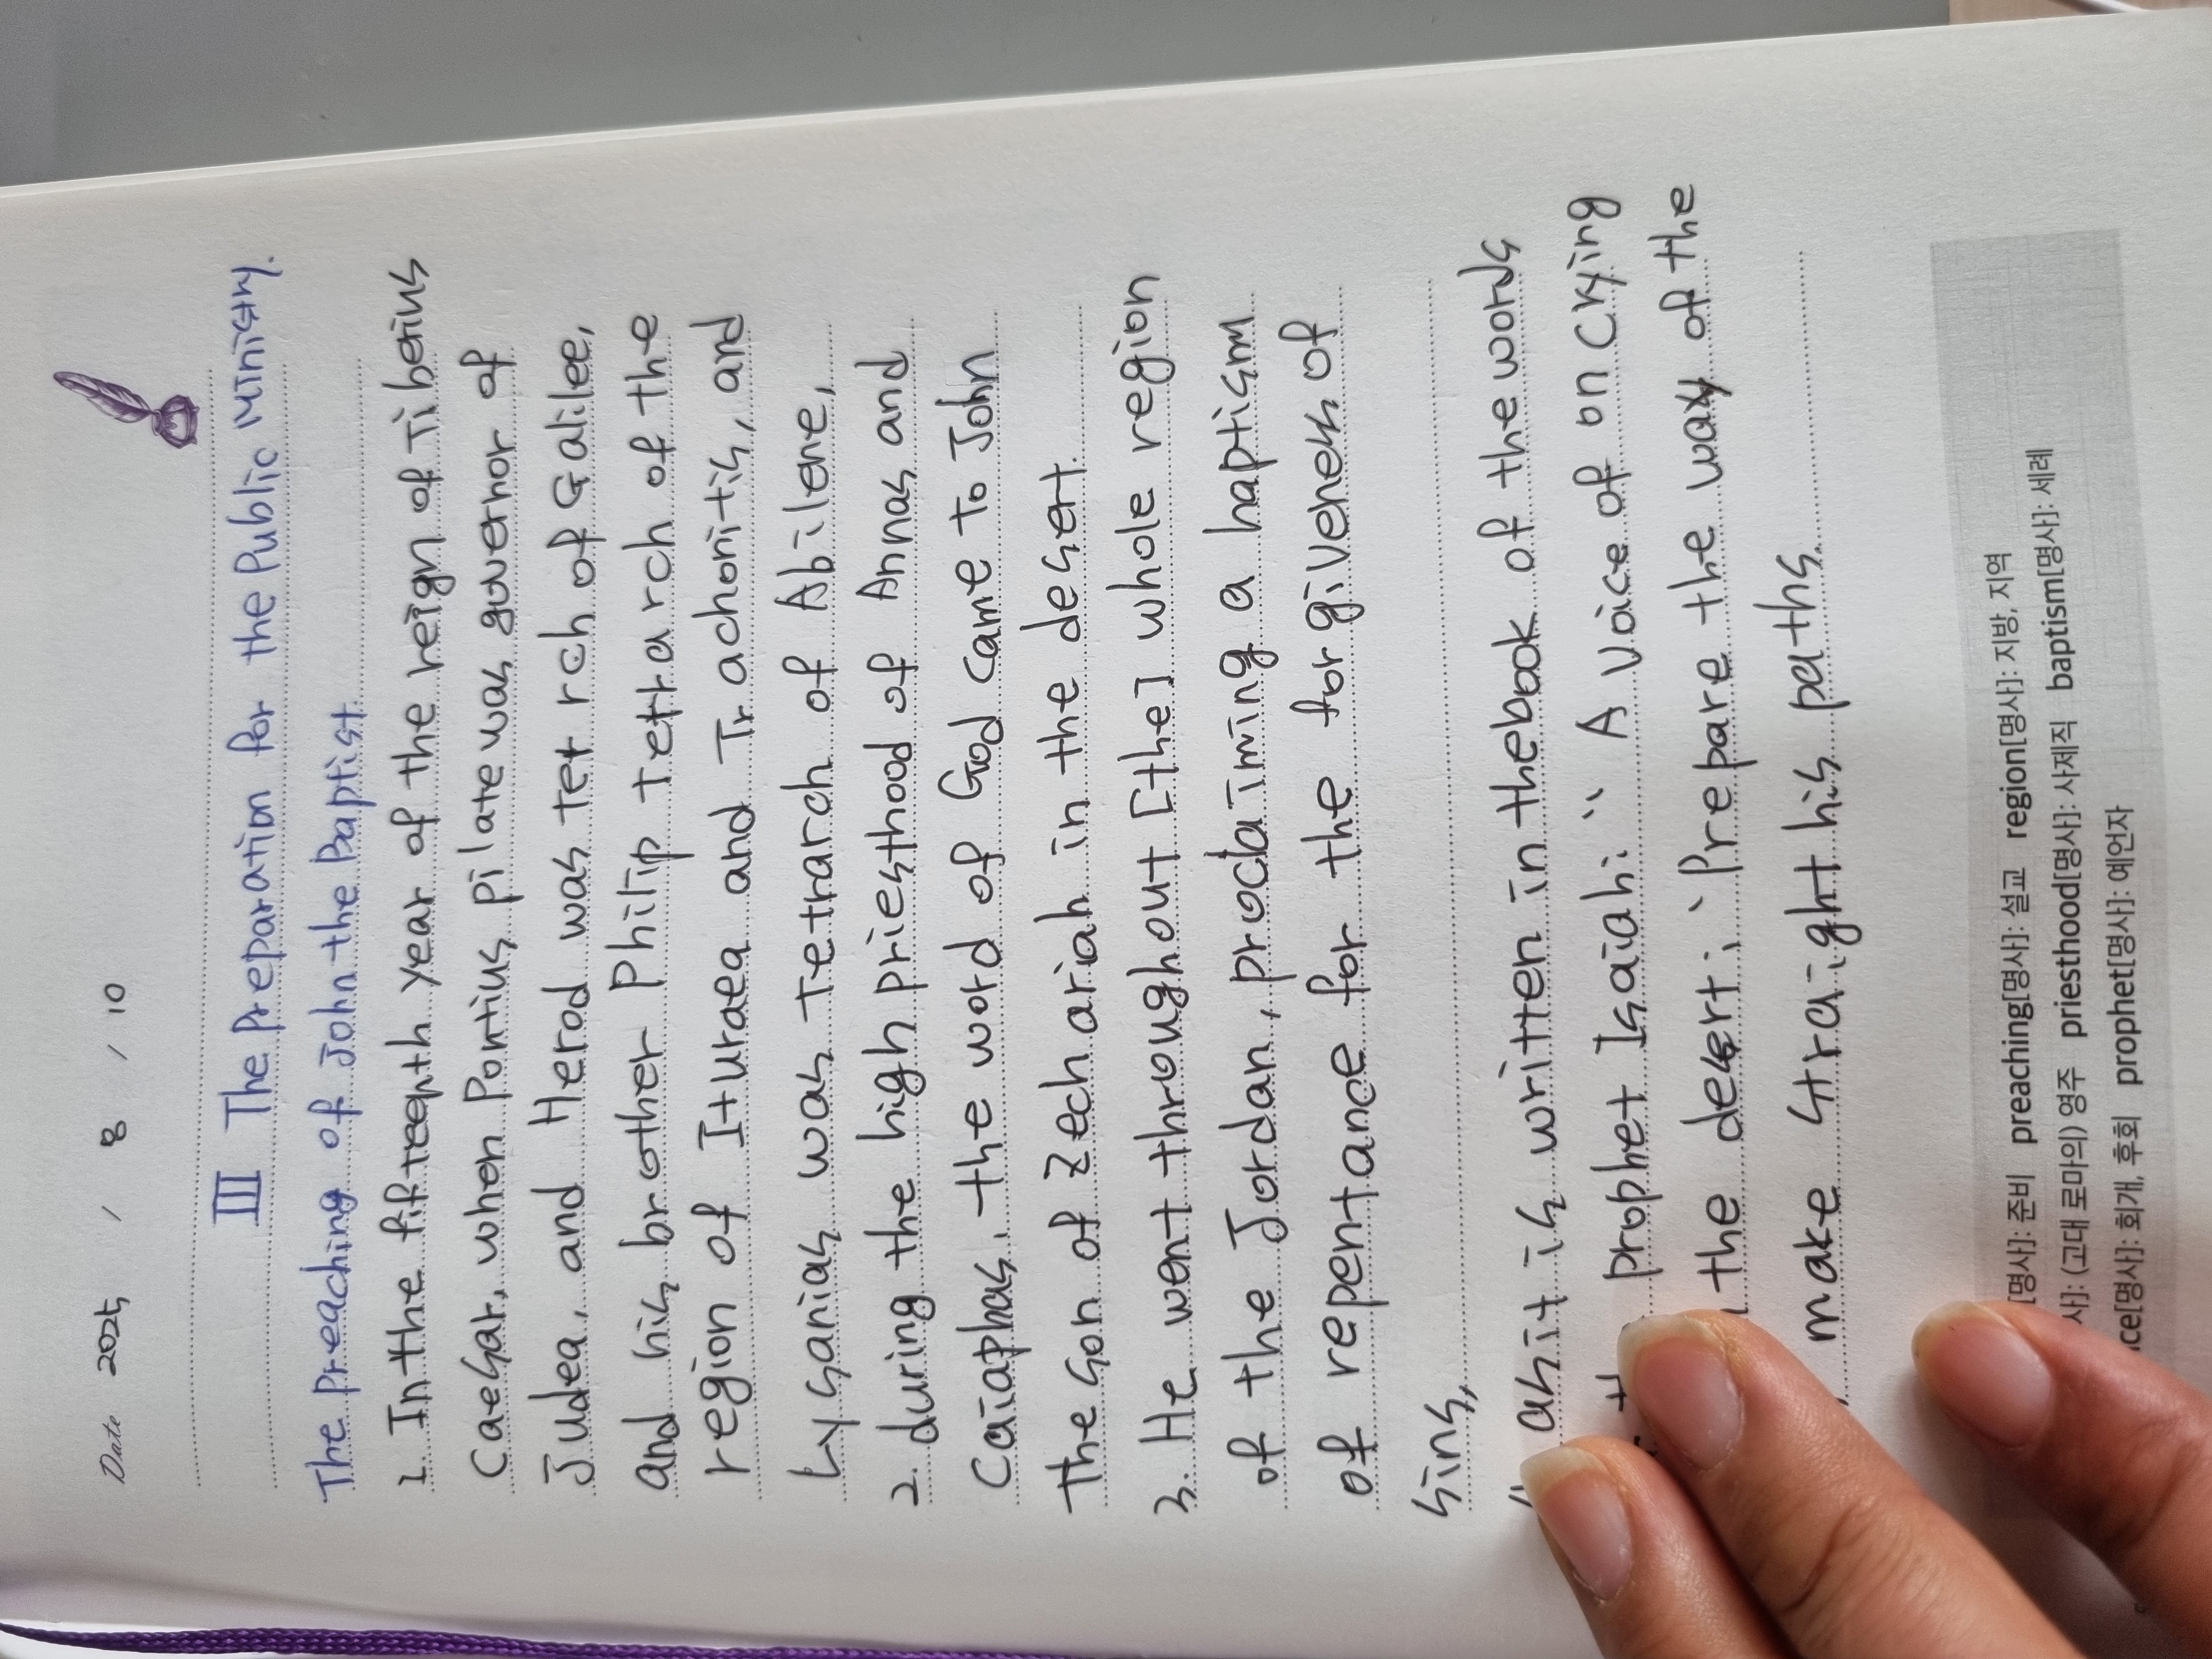 Date 2025 / 8 / 10
III The Preparation for the Public Ministry.
The Preaching of John the Baptist.
1. In the fifteenth year of the reign of Tiberius
Caesar, when Pontius pilate was governor of
Judea, and Herod was tet rch of Galilee,
and his brother Philip tetrarch of the
region of Ituraea and Trachonitis, and
Lysanias was tetrarch of Abilene,
2. during the high priesthood of Annas and
Caiaphas, the word of God came to John
the son of Zechariah in the desert.
3. He went throughout [the] whole region
of the Jordan, proclaiming a baptism
of repentance for the forgiveness of
sins,
as it is written in the book of the words
prophet Isaiah: "A voice of on crying
the desert: 'Prepare the way of the
make straight his paths.
[명사]: 준비 preaching[명사]: 설교 region[명사]: 지방, 지역
사]: (고대 로마의) 영주 priesthood[명사]: 사제직 baptism[명사]: 세례
ce[명사]: 회개, 후회 prophet[명사]: 예언자